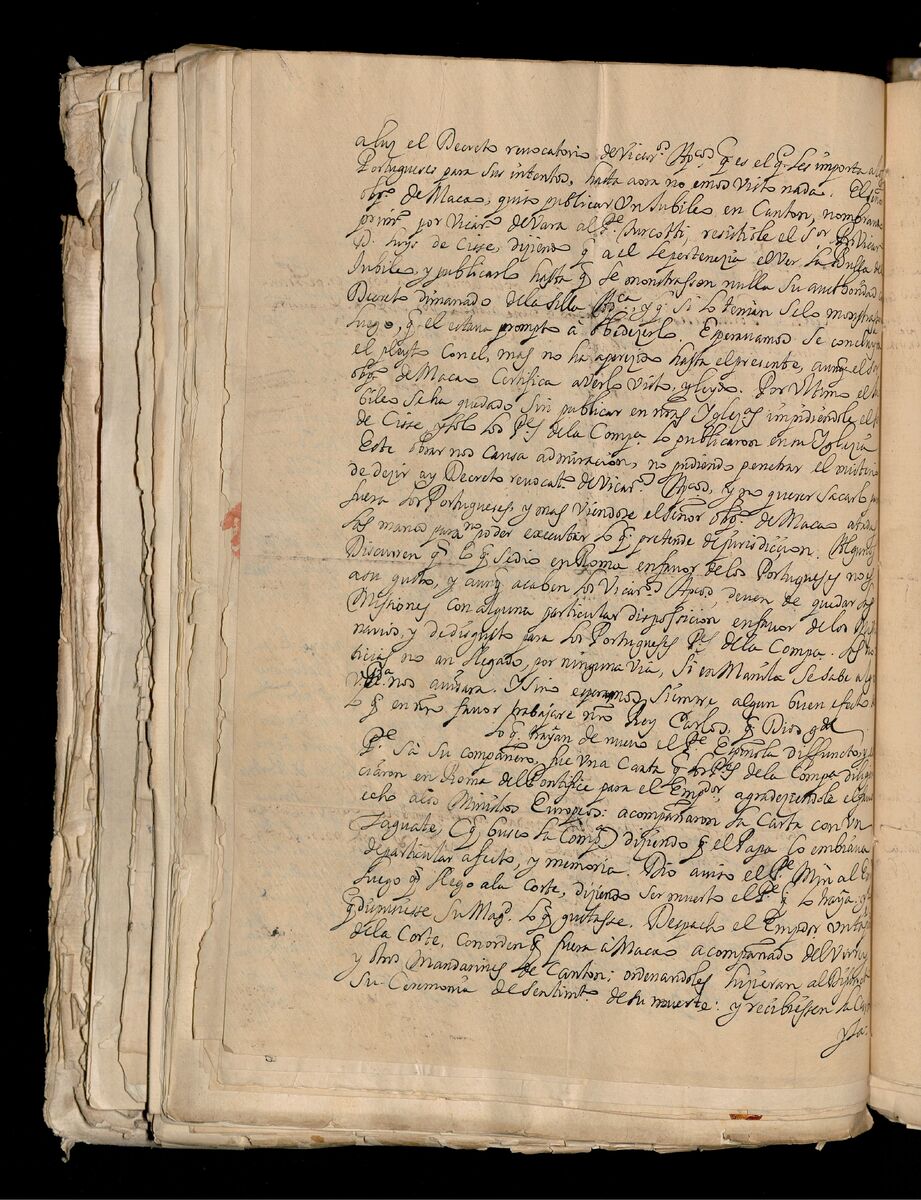 a luz el Decreto revocatorio de Vicar.s Apcos q̃ es el q̃ les importa a los
Portugueses para sus intentos, hasta aora no emos visto nada. El señor
obpo de Macao, quiso publicar un Iubileo en Canton, nombrando
prim.o por Vicar.o de Vara al P.e Turcotti, resistiole el S.or Pro Vicar.o
D. Luys de Cisse, diziendo q̃ a el le pertenezia el ver la Bulla del
Iubileo, y publicarlo hasta q̃ se monstrassen nulla su authoridad
Decreto dimanado de la Silla Apca, y q̃ si lo tenian se lo monstrassen
luego, q̃ el estava prompto â obedezerlo. Esperavamos se concluyera
el pleyto con el, mas no ha aparezido hasta el presente, aunq̃ el S.or
obpo de Macao Certifica averlo visto, y leydo. Por Ultimo el Iu
bileo se ha quedado sin publicar en nras Yglezas impidiendole el
de Cisse, y solo los P.es de la Compa lo publicaron en su Yglezia
Este obrar nos causa admiracion, no pudiendo penetrar el misterio
de dezir ay Decreto revocat.o de Vicar.s Apcos, y no querer sacarlo
fuera los Portugueses, y mas viendose el señor obpo de Macao atadas
las manos para no poder executar lo q̃ pretende de jurisdiccion. Algunos
Discurren q̃ lo q̃ se dio en Roma en favor de los Portugueses no es
a su gusto, y aunq̃ acaben los Vicar.s Apcos, deven de quedar las
Misiones con alguna particular disposicion en favor de los
narios, y de disgusto para los Portugueses P.es de la Compa. Las no
ticias no an llegado, por ninguna via, si en Manila se sabe algo
V. nos avisara. Y sino esperamos siempre algun buen efecto
lo q̃ en nro favor trabajare nro Rey Carlos, q̃ Dios gde
Lo q̃ trayan de nuevo el P.e Español diffuncto, y
P.e Sa su compañero, fue una Carta q̃ los P.es de la Compa diligen
ciaron en Roma del Pontifice para el Empdor, agradeziendole el
echo a los Ministros Europeos: acompañaron la Carta con un
Iaguate, q̃ busco la Compa, diziendo q̃ el Papa lo embiava
de particular afecto, y memoria. Dio aviso el P.e Min al
luego q̃ llego a la Corte, diziendo ser muerto el P.e q̃ lo traya,
q̃ dispusiesse su Magd. lo q̃ gustasse. Despacho el Empdor un
de la Corte, con orden q̃ fuera â Macao acompañado del Virrey
y otros Mandarines de Canton; ordenandoles hizieran al Difunto
su Ceremonia de sentimto de su muerte: y recibiessen la Carta
y la